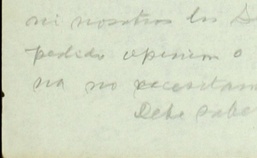 ni nosotros los D
pedido opinion o
na no necesitam
Debe sabe